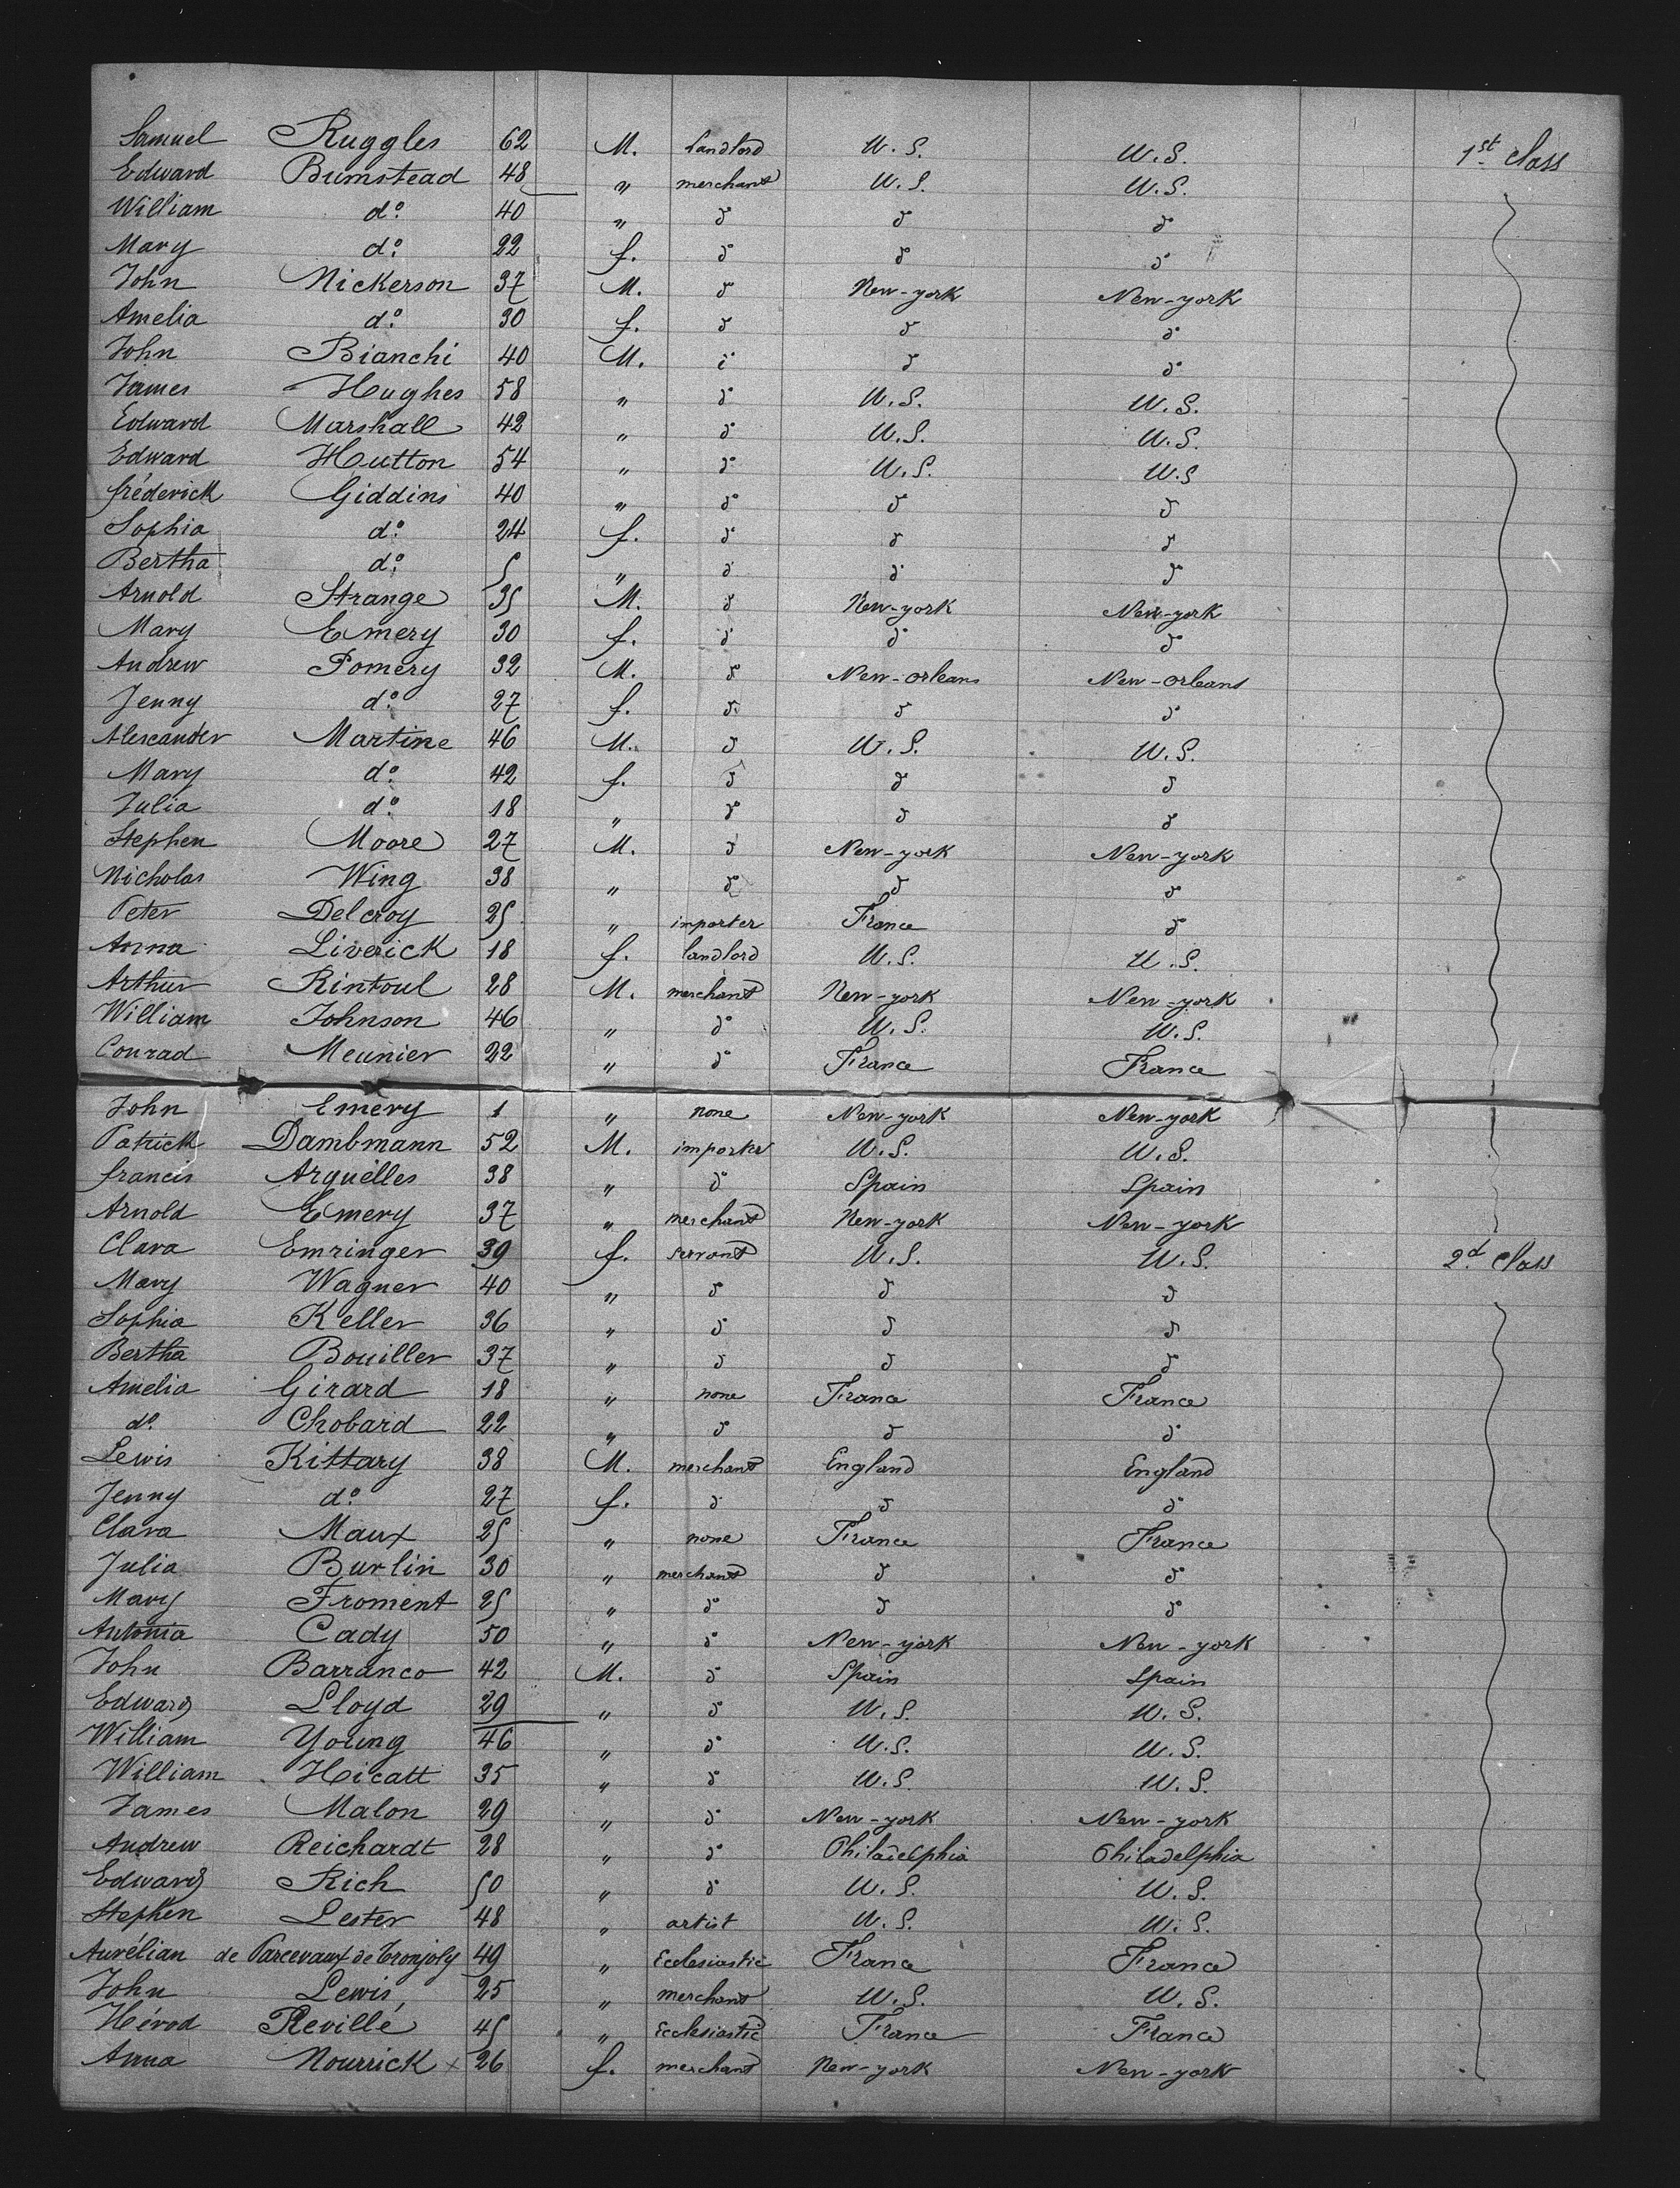 Samuel Ruggles 62 M. Landlord U.S. U.S. 1st class
Edward Bumstead 48 " merchant U.S. U.S.
William do. 40 " do do do
Mary do. 22 f. do do do
John Nickerson 37 M. do New-york New-york
Amelia do. 30 f. do do do
John Bianchi 40 M. do do do
James Hughes 58 " do U.S. U.S.
Edward Marshall 42 " do U.S. U.S.
Edward Hutton 54 " do U.S. U.S
fréderick Giddins 40 " do do do
Sophia do. 24 f. do do do
Bertha do. 5 " do do do
Arnold Strange 35 M. do New-york New-york
Mary Emery 30 f. do do do
Andrew Pomery 32 M. do New-orleans New-orleans
Jenny do. 27 f. do do do
Alexcander Martine 46 M. do U.S. U.S.
Mary do. 42 f. do do do
Julia do. 18 " do do do
Stephen Moore 27 M. do New-york New-york
Nicholas Wing 38 " do do do
Peter Delcroy 25 " importer France do
Anna Liverick 18 f. landlord U.S. U.S.
Arthur Rintoul 28 M. merchant New-york New-york
William Johnson 46 " do U.S. U.S.
Conrad Meunier 22 " do France France
John Emery 1 " none New-york New-york
Patrick Dambmann 52 M. importer U.S. U.S.
francis Arguelles 38 " do Spain Spain
Arnold Emery 37 " merchant New-york New-york
Clara Emringer 39 f. servant U.S. U.S. 2d class
Mary Wagner 40 " do do do
Sophia Keller 36 " do do do
Bertha Bouiller 37 " do do do
Amelia Girard 18 " none France France
do. Chobard 22 " do do do
Lewis Kittary 38 M. merchant England England
Jenny do. 27 f. do do do
Clara Maux 25 " none France France
Julia Burlin 30 " merchant do do
Mary Froment 25 " do do do
Antonia Cady 50 " do New-york New-york
John Barranco 42 M. do Spain Spain
Edward Lloyd 29 " do U.S. U.S.
William Young 46 " do U.S. U.S.
William Hicatt 35 " do U.S. U.S.
James Malon 29 " do New-york New-york
Andrew Reichardt 28 " do Philadelphia Philadelphia
Edward Rich 50 " do U.S. U.S.
Stephen Lester 48 " artist U.S. U.S.
Aurélian de Parcevaux de Tronjoly 49 " Ecclesiastic France France
John Lewis 25 " merchant U.S. U.S.
Hérod Revillé 45 " Ecclesiastic France France
Anna Nourrick x 26 f. merchant New-york New-york